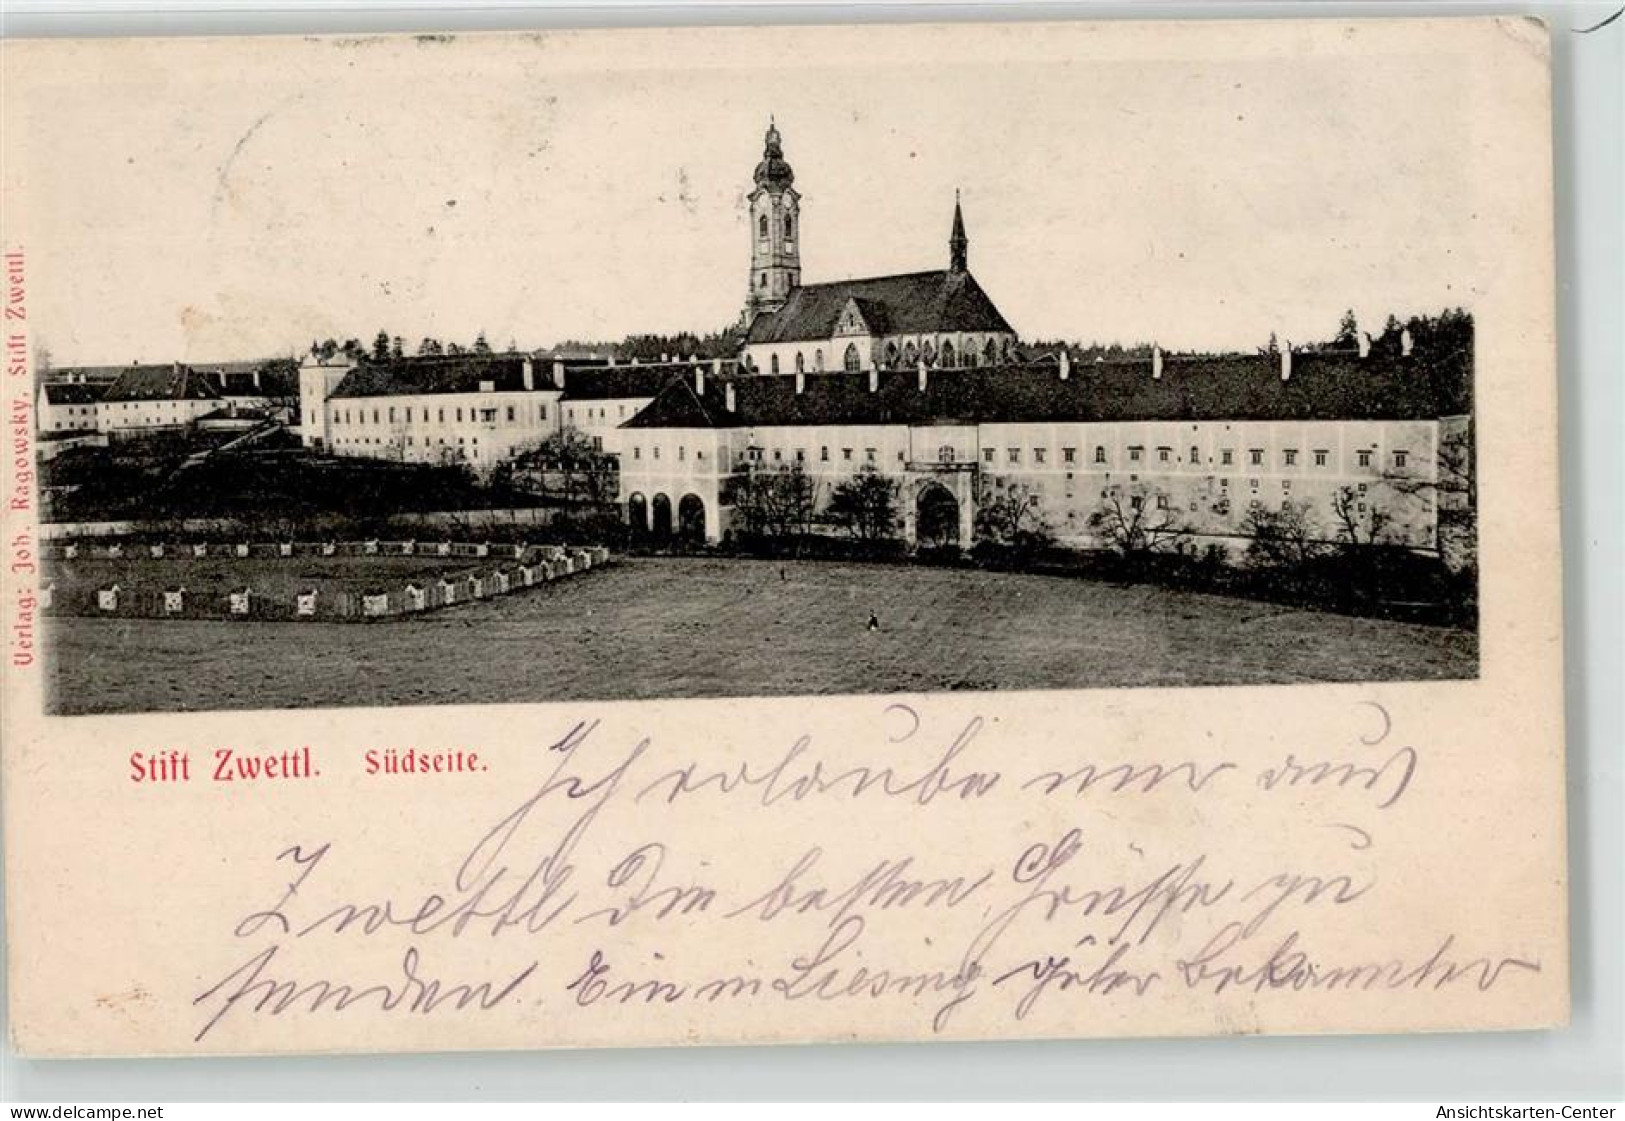 Verlag: Joh. Ragowsky, Stift Zwettl.
Stift Zwettl. Südseite.
Ich erlaube mir aus
Zwettl Die besten Grüsse zu
senden. Ein in Liesing guter Bekannter
www.delcampe.net
Ansichtskarten-Center